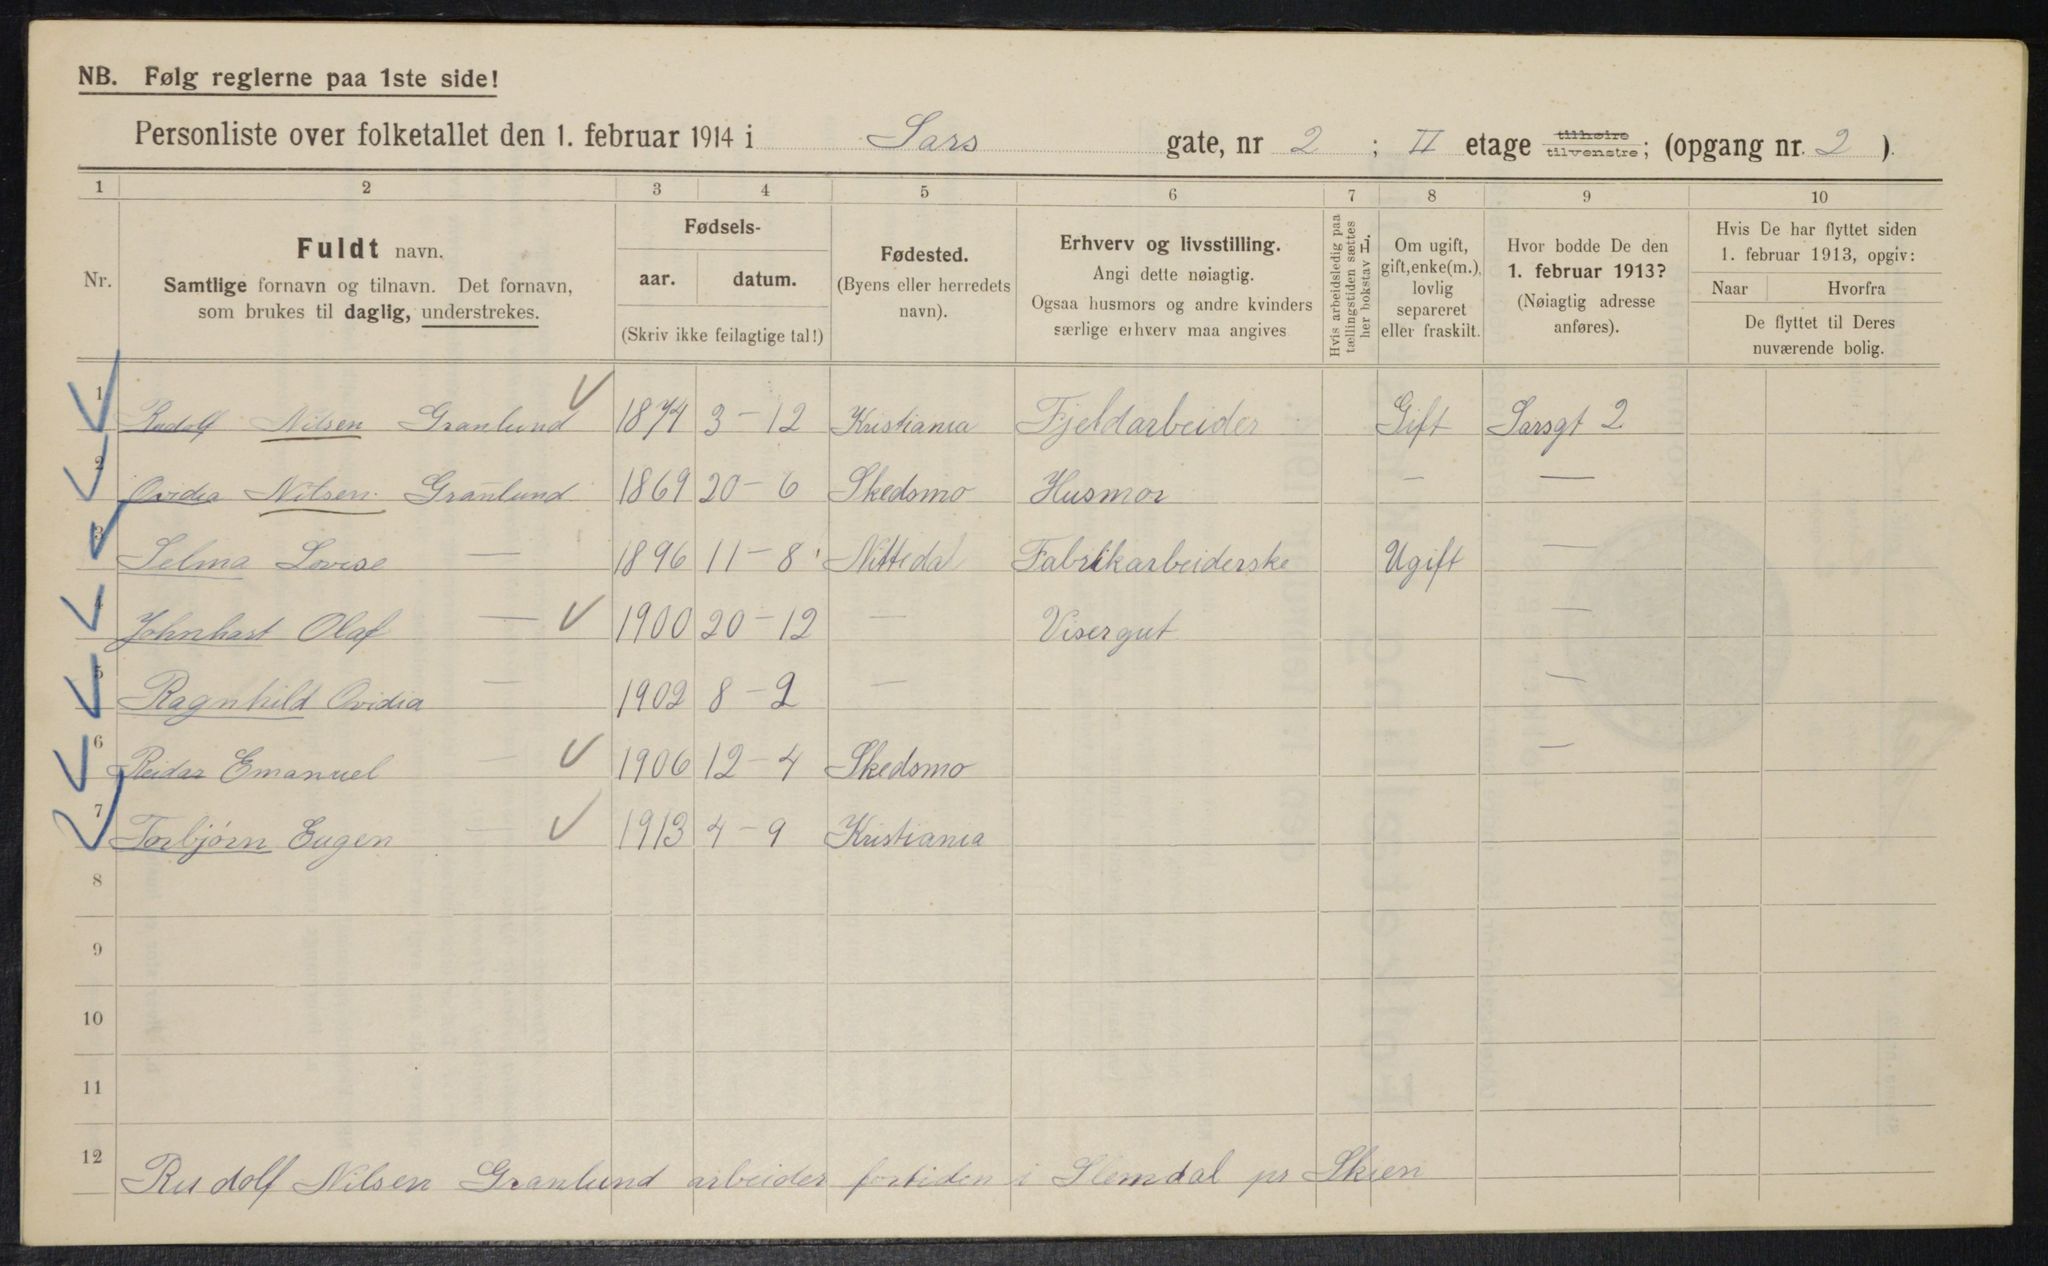 NB. Følg reglerne paa 1ste side!
Personliste over folketallet den 1. februar 1914 i Sars gate, nr 2 ; II etage tilhøire tilvenstre; (opgang nr. 2 ).
1 2 3 4 5 6 7 8 9 10
Nr.
Fuldt navn.
Samtlige fornavn og tilnavn. Det fornavn,
som brukes til daglig, understrekes.
Fødsels-
aar. datum.
(Skriv ikke feilagtige tal!)
Fødested.
(Byens eller herredets
navn).
Erhverv og livsstilling.
Angi dette nøiagtig.
Ogsaa husmors og andre kvinders
særlige erhverv maa angives
Hvis arbeidsledig paa
tællingstiden sættes
her bokstav L.
Om ugift,
gift, enke(m.),
lovlig
separeret
eller fraskilt.
Hvor bodde De den
1. februar 1913?
(Nøiagtig adresse
anføres).
Hvis De har flyttet siden
1. februar 1913, opgiv:
Naar Hvorfra
De flyttet til Deres
nuværende bolig.
1 Rudolf Nilsen Granlund 1874 3-12 Kristiania Fjeldarbeider Gift Sarsgt 2
2 Ovidia Nilsen Granlund 1869 20-6 Skedsmo Husmor — —
3 Selma Lovise — 1896 11-8 Nittedal Fabrikarbeiderske Ugift —
4 Johnhart Olaf — 1900 20-12 — Visergut —
5 Ragnhild Ovidia — 1902 8-2 — —
6 Reidar Emanuel — 1906 12-4 Skedsmo —
7 Torbjørn Eugen — 1913 4-9 Kristiania
8
9
10
11
12 Rudolf Nilsen Granlund arbeider fortiden i Slemdal pr Skien